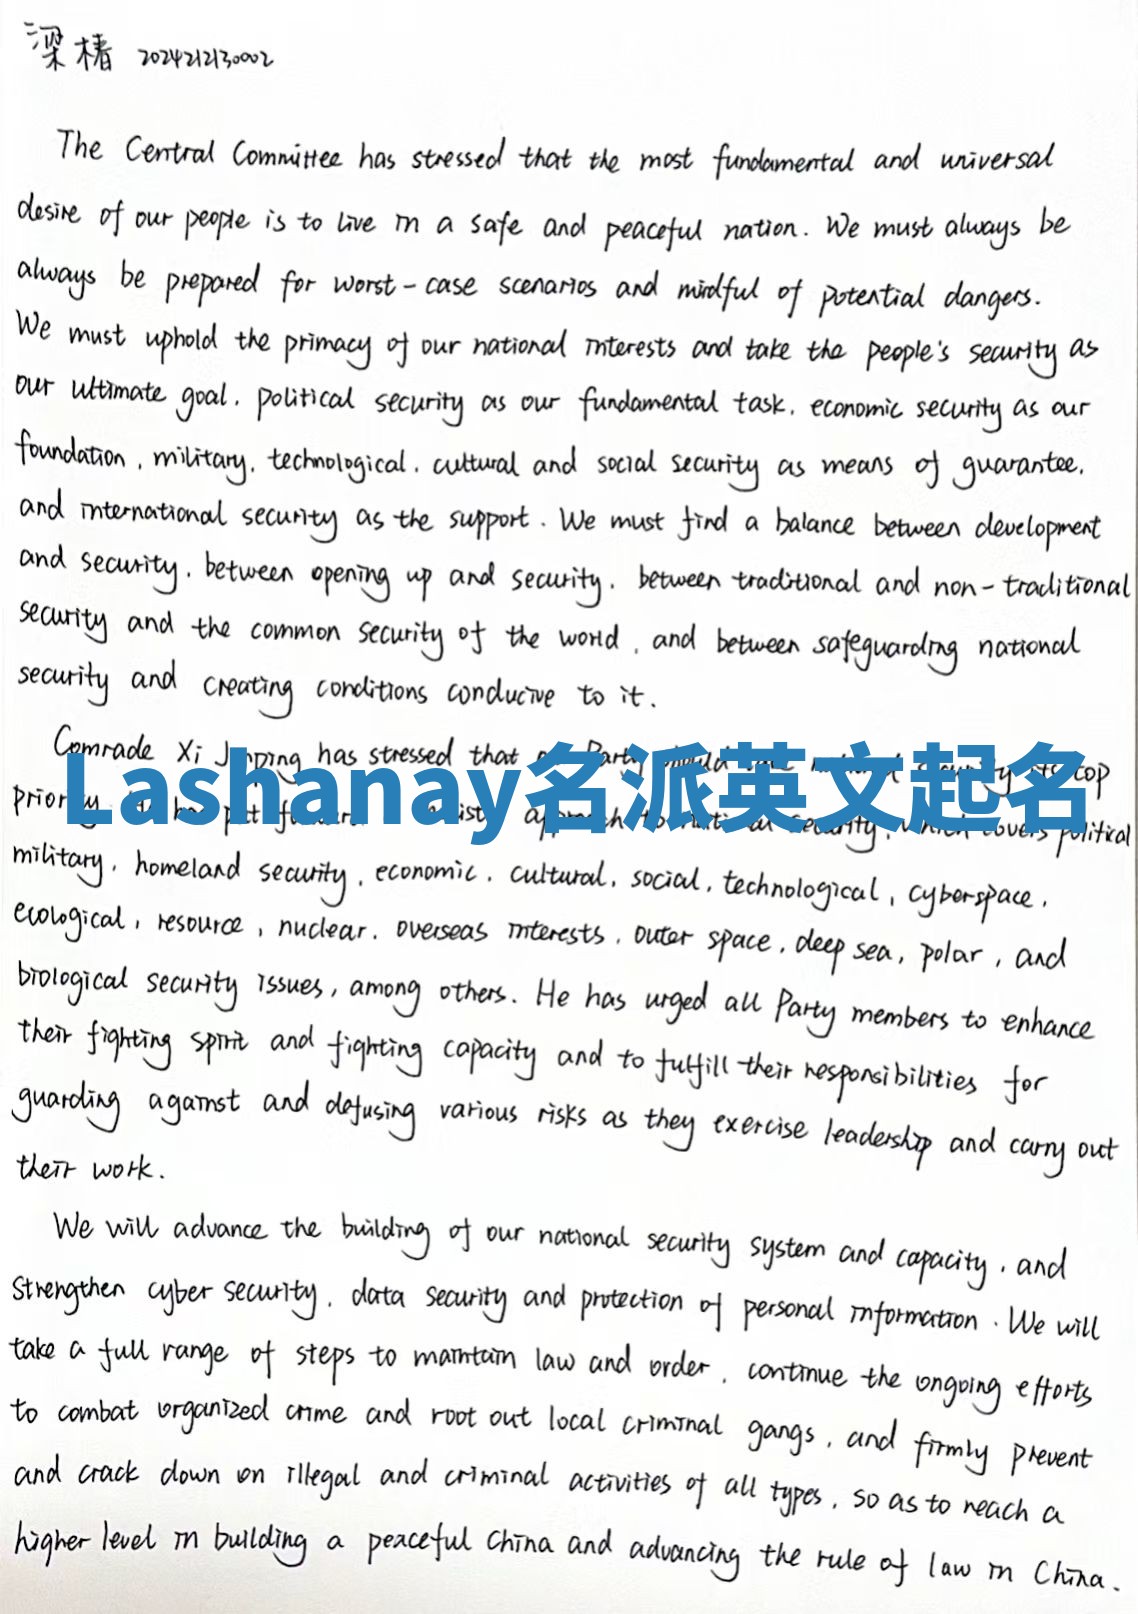 梁椿 2024212130002
The Central Committee has stressed that the most fundamental and universal
desire of our people is to live in a safe and peaceful nation. We must always be
always be prepared for worst-case scenarios and mindful of potential dangers.
We must uphold the primacy of our national interests and take the people's security as
our ultimate goal, political security as our fundamental task, economic security as our
foundation, military, technological, cultural and social security as means of guarantee,
and international security as the support. We must find a balance between development
and security, between opening up and security, between traditional and non-traditional
security and the common security of the world, and between safeguarding national
security and creating conditions conducive to it.
Comrade Xi Jinping has stressed that Party top
Lashanay名派英文起名
priority put approach security, which covers political
military, homeland security, economic, cultural, social, technological, cyberspace,
ecological, resource, nuclear, overseas interests, outer space, deep sea, polar, and
biological security issues, among others. He has urged all Party members to enhance
their fighting spirit and fighting capacity and to fulfill their responsibilities for
guarding against and defusing various risks as they exercise leadership and carry out
their work.
We will advance the building of our national security system and capacity, and
strengthen cyber security, data security and protection of personal information. We will
take a full range of steps to maintain law and order, continue the ongoing efforts
to combat organized crime and root out local criminal gangs, and firmly prevent
and crack down on illegal and criminal activities of all types, so as to reach a
higher level in building a peaceful China and advancing the rule of law in China.